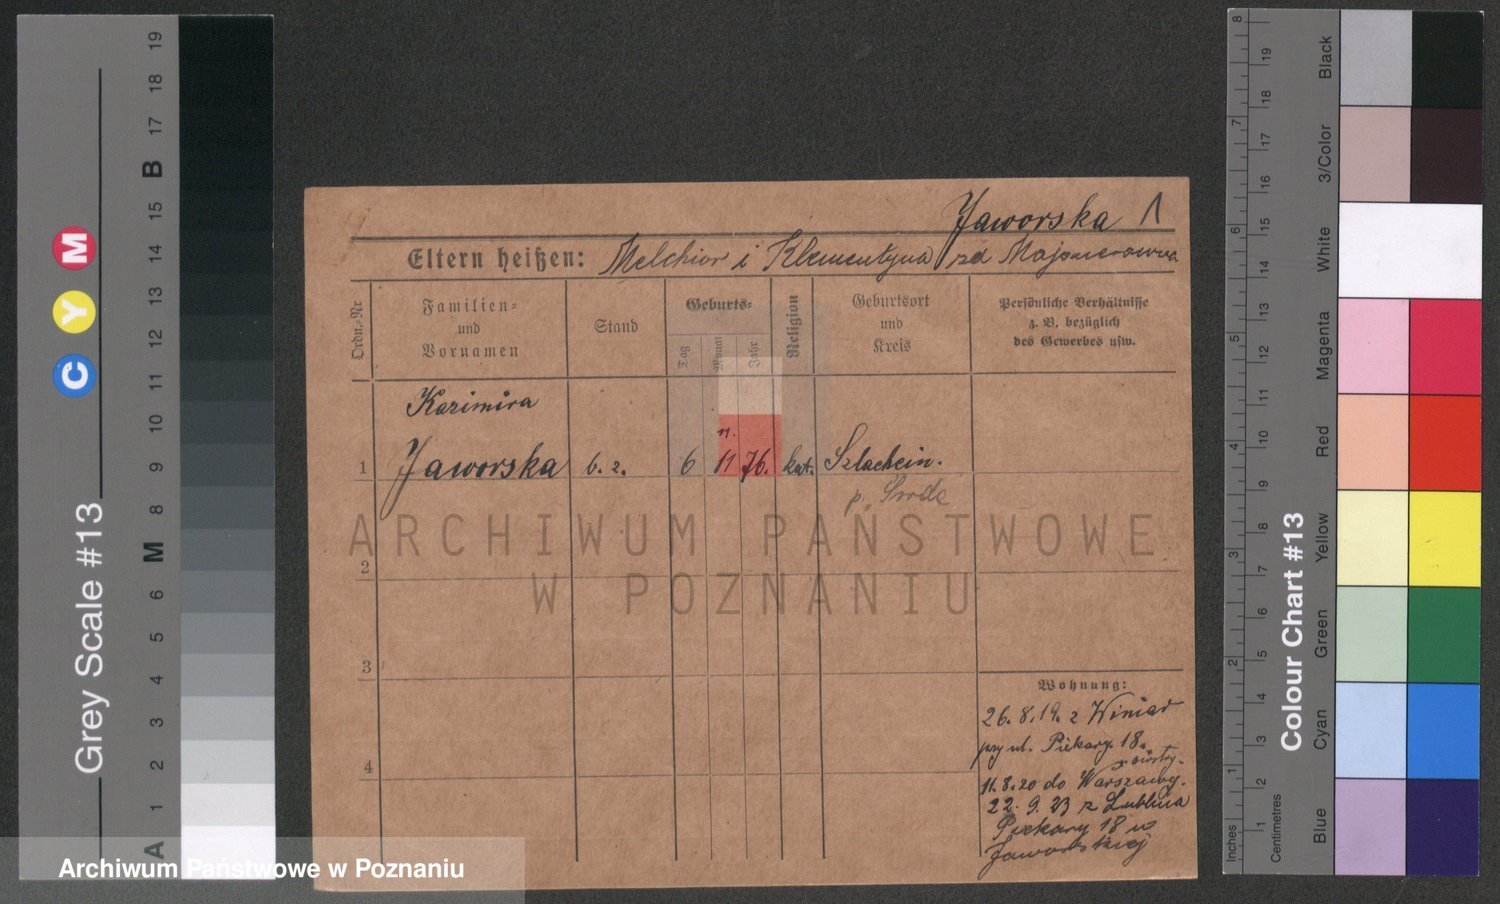 Grey Scale #13
C Y M
A 1 2 3 4 5 6 M 8 9 10 11 12 13 14 15 B 17 18 19
Jaworska 1
Eltern heißen: Melchior i Klementyna zd
Ordn.-Nr
Familien-
und
Vornamen
Stand
Geburts-
Tag
Monat
Jahr
Religion
Geburtsort
und
Kreis
Persönliche Verhältnisse
z. B. bezüglich
des Gewerbes usw.
Kazimira
1 Jaworska b. z. 6 11 76. kat. Szlachcin.
p. Środa
ARCHIWUM PAŃSTWOWE
W POZNANIU
2
3
4
Wohnung:
26.8.19. z Winiar
przy ul. Piekary 18.
z siostry.
11.8.20 do Warszawy.
22.9.23 z Lublina
Piekary 18 u
Jaworskiej
Archiwum Państwowe w Poznaniu
Colour Chart #13
Inches 1 2 3 4 5 6 7 8
Centimetres 1 2 3 4 5 6 7 8 9 10 11 12 13 14 15 16 17 18 19
Blue
Cyan
Green
Yellow
Red
Magenta
White
3/Color
Black